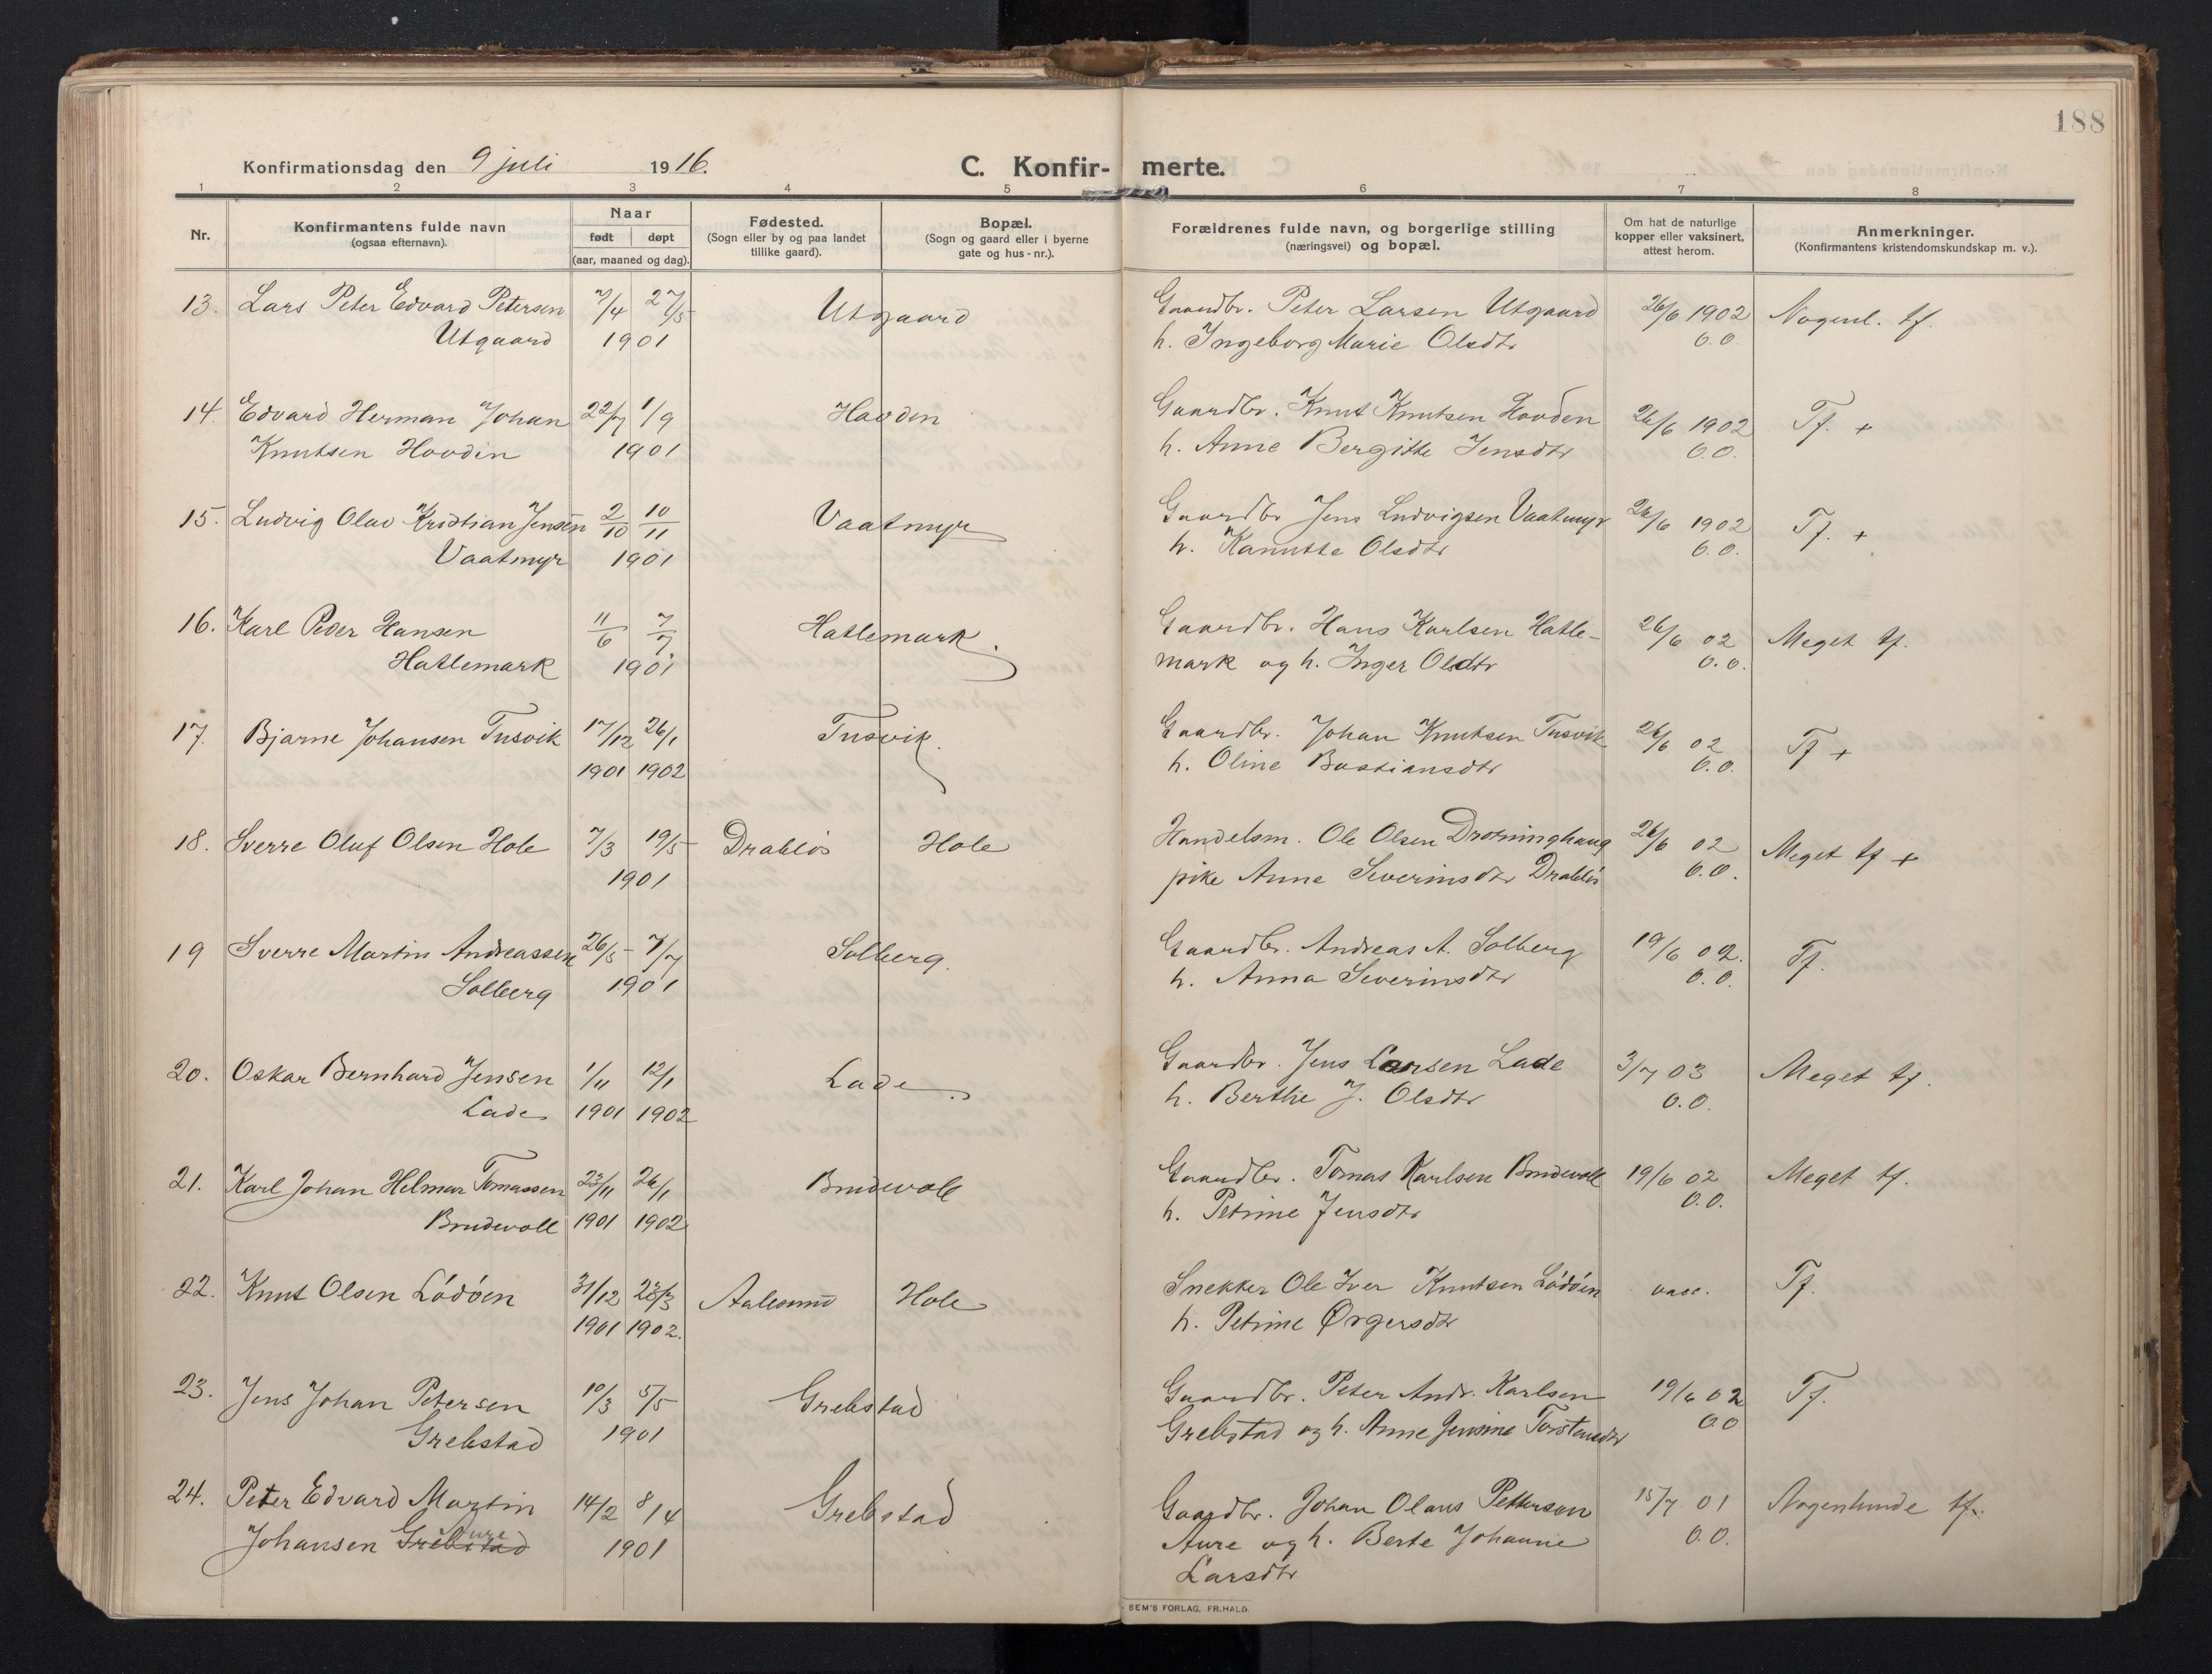 188
Konfirmationsdag den 9 juli 1916.
C. Konfir- merte.
1 2 3 4 5 6 7 8
Nr.
Konfirmantens fulde navn
(ogsaa efternavn).
Naar
født døpt
(aar, maaned og dag).
Fødested.
(Sogn eller by og paa landet
tillike gaard).
Bopæl.
(Sogn og gaard eller i byerne
gate og hus-nr.).
Forældrenes fulde navn, og borgerlige stilling
(næringsvei) og bopæl.
Om hat de naturlige
kopper eller vaksinert,
attest herom.
Anmerkninger.
(Konfirmantens kristendomskundskap m. v.).
13. Lars Peter Edvard Petersen 7/4 27/5 Utgaard Gaardbr. Peter Larsen Utgaard 26/6 1902 Nogenl. tf.
Utgaard 1901 h. Ingeborg Marie Olsdtr O.O.
14. Edvard Herman Johan 22/7 1/9 Hovden Gaardbr. Knut Knutsen Hovden 26/6 1902 Tf. +
Knutsen Hovden 1901 h. Anne Bergitte Jensdtr O.O.
15. Ludvig Olav Kristian Jensen 2/10 10/11 Vaatmyr Gaardbr Jens Ludvigsen Vaatmyr 26/6 1902 Tf. +
Vaatmyr 1901 h. Kanutte Olsdtr O.O.
16. Karl Peder Hansen 11/6 7/7 Hatlemark. Gaardbr. Hans Karlsen Hatle- 26/6 02 Meget tf.
Hatlemark 1901 mark og h. Inger Olsdtr O.O.
17. Bjarne Johansen Tusvik 17/12 26/1 Tusvik. Gaardbr. Johan Knutsen Tusvik 26/6 02 Tf +
1901 1902 h. Oline Bastiansdtr O.O.
18. Sverre Oluf Olsen Hole 7/3 19/5 Drabløs Hole Handelsm. Ole Olsen Droninghaug 26/6 02 Meget tf +
1901 pike Anne Severinsdtr Drabløs O.O.
19 Sverre Martin Andreassen 26/5 7/7 Solberg. Gaardbr. Andreas A. Solberg 19/6 02. Tf.
Solberg 1901 h. Anna Severinsdtr O.O.
20. Oskar Bernhard Jensen 1/11 12/1 Lade. Gaardbr. Jens Larsen Lade 3/7 03 Meget tf.
Lade 1901 1902 h. Berthe J. Olsdtr O.O.
21. Karl Johan Helmar Tomassen 23/11 26/1 Brudevoll Gaardbr. Tomas Karlsen Brudevoll 19/6 02 Meget tf.
Brudevoll 1901 1902 h. Petrine Jensdtr O.O.
22. Knut Olsen Lødøen 31/12 23/3 Aalesund Hole Snekker Ole Iver Knutsen Lødøen vacc. Tf.
1901 1902. h. Petrine Ørgersdtr
23. Jens Johan Petersen 10/3 5/5 Grebstad Gaardbr. Peter Andr. Karlsen 19/6 02 Tf.
Grebstad 1901 Grebstad og h. Anne Jensine Torstensdtr O.O
24. Peter Edvard Martin 14/2 8/4 Grebstad Gaardbr. Johan Olaus Pettersen 15/7 01 Nogenlunde tf.
Johansen Grebstad Aure 1901 Aure og h. Berte Johanne O.O.
Larsdtr
SEM'S FORLAG. FR.HALD.